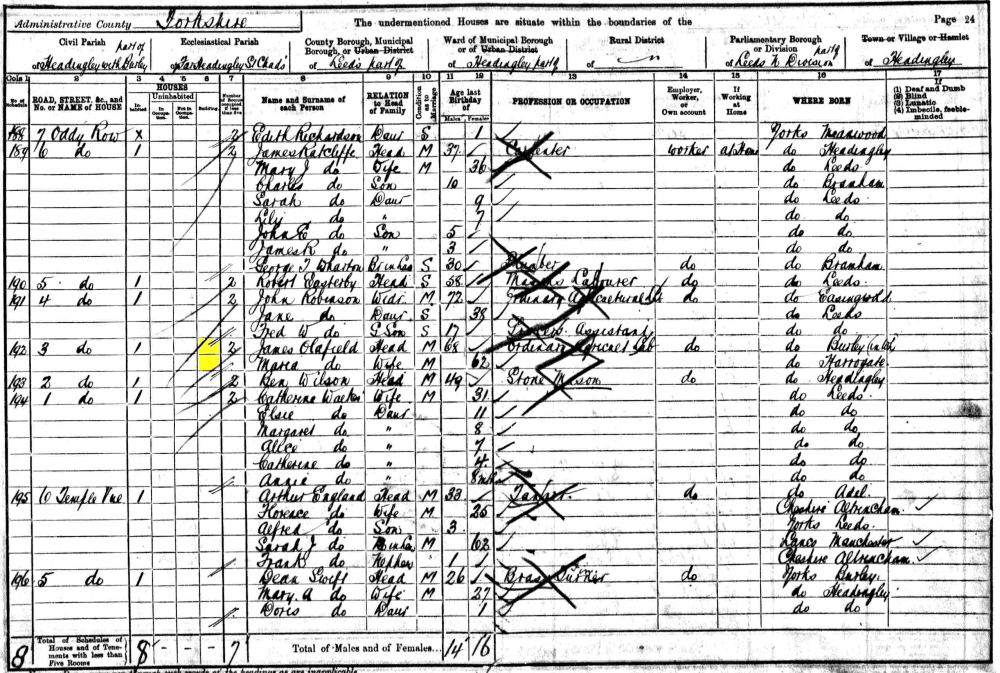 Administrative County Yorkshire The undermentioned Houses are situate within the boundaries of the Page 24
Civil Parish part of Ecclesiastical Parish County Borough, Municipal Borough, or Urban District Ward of Municipal Borough or of Urban District Rural District Parliamentary Borough or Division part of Town or Village or Hamlet
of Headingley with Burley of Far Headingley St Chads of Leeds part of of Headingley part of of of Leeds N Division of Headingley
Cols 1 2 3 4 5 6 7 8 9 10 11 12 13 14 15 16 17
No. of Schedule ROAD, STREET, &c., and No. or NAME of HOUSE HOUSES Inhabited Uninhabited In Occupation. Not in Occupation. Building. Number of Rooms occupied if less than five Name and Surname of each Person RELATION to Head of Family Condition as to Marriage Age last Birthday of Males Females PROFESSION OR OCCUPATION Employer, Worker, or Own account If Working at Home WHERE BORN If (1) Deaf and Dumb (2) Blind (3) Lunatic (4) Imbecile, feeble-minded
188 7 Oddy Row x 2 Edith Richardson Daur S 1 Yorks Meanwood
189 6 do 1 2 James Ratcliffe Head M 37 Carpenter worker at Home do Headingley
Mary J do Wife M 36 do Leeds
Charles do Son 10 do Bramham
Sarah do Daur 9 do Leeds
Lily do " 7 do do
John E do Son 5 do do
James R do " 3 do do
George T Wharton Br in law S 30 Plumber do do Bramham
190 5 do 1 2 Robert Easterby Head S 58 Masons Labourer do do Leeds
191 4 do 1 2 John Robinson Widr M 72 Ordinary do do Easingwold
Jane do Daur S 38 do Leeds
Fred W do G Son S 17 Assistant do do
192 3 do 1 2 James Olafield Head M 68 Ordinary Lab do do Burley
Maria do Wife M 62 do Harrogate
193 2 do 1 2 Ben Wilson Head M 49 Stone Mason do do Headingley
194 1 do 1 2 Catherine Wife M 31 do Leeds
Elsie do Daur 11 do do
Margaret do " 8 do do
Alice do " 7 do do
Catherine do " 4 do do
Annie do " 8 mths do do
195 6 Temple Vue 1 Arthur England Head M 33 do do Adel
Florence do Wife M 25 Cheshire Altrincham
Alfred do Son 3 Yorks Leeds
Sarah J do M 62 Lancs Manchester
Frank do Nephew 1 Cheshire Altrincham
196 5 do 1 Dean Swift Head M 26 Brass Turner do Yorks Burley
Mary A do Wife M 27 do Headingley
Doris do Daur 1 do do
8 Total of Schedules of Houses and of Tenements with less than Five Rooms 8 - - - 7 Total of Males and of Females... 14 16